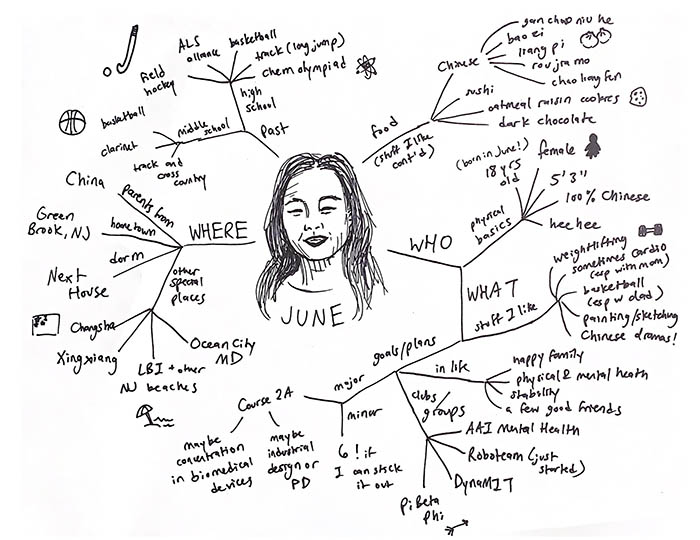 ALS
alliance
basketball
track (long jump)
chem olympiad
field
hockey
high
school
basketball
middle
school
clarinet
track and
cross
country
past
Chinese
gan chao niu he
bao zi
liang pi
rou jia mo
chao liang fen
sushi
oatmeal raisin cookies
dark chocolate
food
(stuff I like
cont'd)
China
parents from
Green
Brook, NJ
hometown
WHERE
dorm
Next
House
other
special
places
Changsha
Xingxiang
LBI + other
NJ beaches
Ocean City
MD
JUNE
WHO
physical
basics
(born in June!)
18 yrs
old
female
5'3"
100% Chinese
hee hee
WHAT
stuff I like
weightlifting
sometimes cardio
(esp with mom)
basketball
(esp w dad)
painting/sketching
Chinese dramas!
goals/plans
in life
happy family
physical & mental health
stability
a few good friends
clubs
groups
AAI Mental Health
Roboteam (just
started)
DynaMIT
Pi Beta
Phi
major
Course 2A
maybe
concentration
in biomedical
devices
maybe
industrial
design or
PD
minor
6! if
I can stick
it out